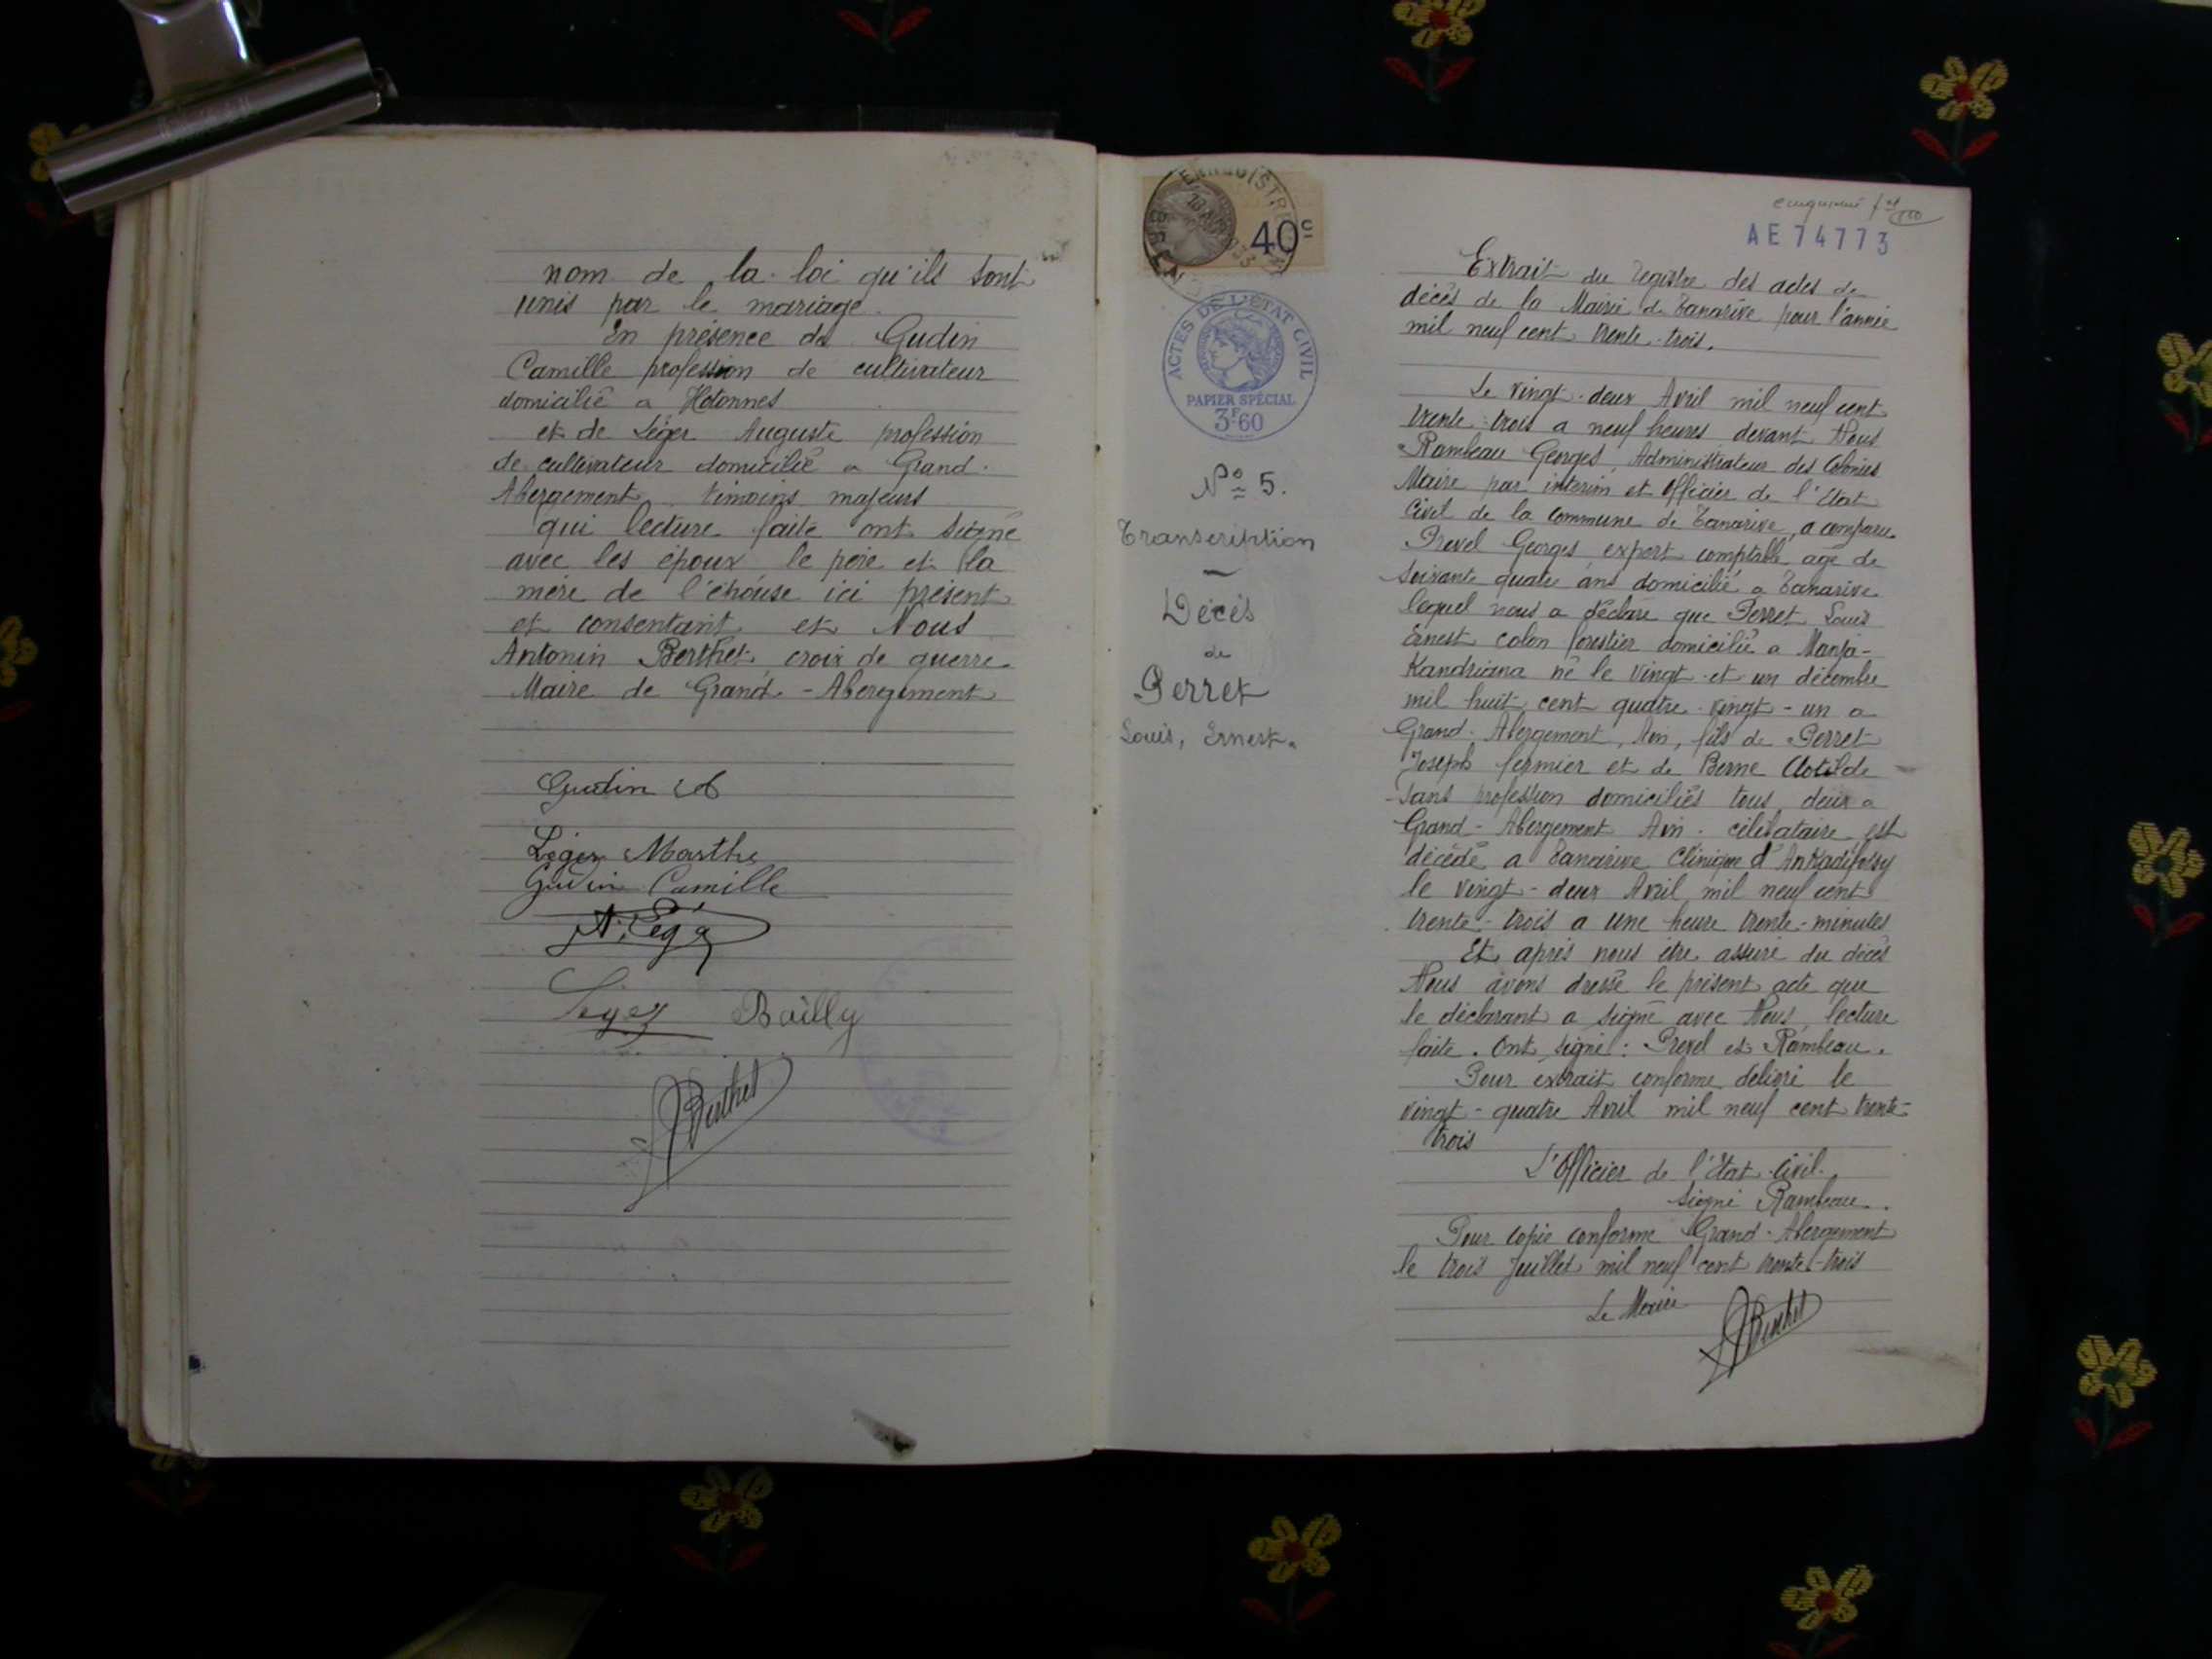 nom de la loi qu'ils sont
unis par le mariage.
En présence de Gudin
Camille profession de cultivateur
domicilié a Hotonnes
et de Léger Auguste profession
de cultivateur domicilié a Grand-
Abergement témoins majeurs
qui lecture faite ont signé
avec les époux le père et la
mère de l'épouse ici présent
et consentant et Nous
Antonin Berthet croix de guerre
Maire de Grand-Abergement
Gudin
Léger Marthe
Gudin Camille
A. Léger
Léger Bailly
Berthet
40c
ACTES DE L'ÉTAT CIVIL
PAPIER SPÉCIAL
3F60
No 5.
Transcription
Décès
de
Perret
Louis, Ernest.
AE 74773
Extrait du registre des actes de
décès de la Mairie de Tanarive pour l'année
mil neuf cent trente-trois.
Le vingt-deux Avril mil neuf cent
trente-trois a neuf heures devant Nous
Rambeau Georges, Administrateur des Colonies
Maire par intérim et Officier de l'Etat
Civil de la commune de Tanarive, a comparu
Prevel Georges expert comptable âgé de
soixante quatre ans domicilié a Tanarive
lequel nous a déclaré que Perret Louis
Ernest colon forestier domicilié a Manja-
Kandriana né le vingt et un décembre
mil huit cent quatre-vingt-un a
Grand-Abergement, Ain, fils de Perret
Joseph fermier et de Berne Clotilde
sans profession domiciliés tous deux a
Grand-Abergement Ain. célibataire, est
décédé a Tanarive Clinique d'Ankadifotsy
le vingt-deux Avril mil neuf cent
trente-trois a une heure trente-minutes
Et après nous être assuré du décès
Nous avons dressé le présent acte que
le déclarant a signé avec Nous, lecture
faite. Ont signé : Prevel et Rambeau.
Pour extrait conforme délivré le
vingt-quatre Avril mil neuf cent trente-
trois
L'Officier de l'Etat-Civil.
signé Rambeau.
Pour copie conforme Grand-Abergement
le trois Juillet mil neuf cent trente-trois
Le Maire
Berthet